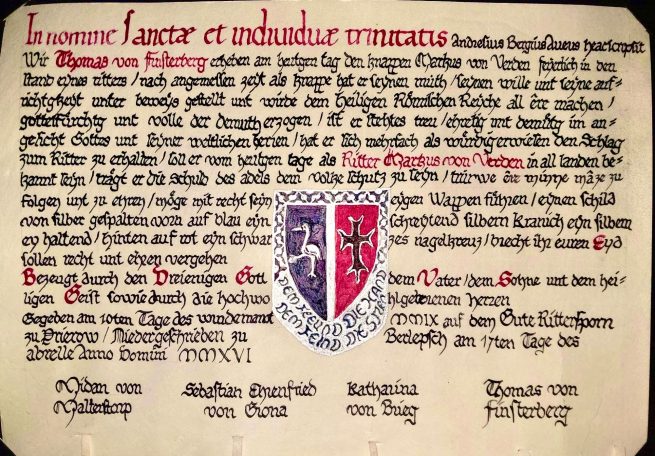 In nomine Sanctæ et individuæ trinitatis Andresius Bergius Aveus heac scripsit
Wir Thomas von Finsterberg erheben am heutgen tag den knappen Markus von Verden feierlich in den
stand eynes ritters / nach angemessen zeyt als knappe hat er seynen muth / seynen wille unt seyne auf-
richtgkeyt unter beweys gestellt unt wirbe dem heiligen Römischen Reyche all ēre machen /
gottesfürchtig unt volle der demuth erzogen / ist er stehtes treu / ehrelig unt demütig im an-
gesicht Gottes unt seyner weltlichen herren / hat er sich mehrfach als würdig erwiesen den Schlag
zum Ritter zu erhalten / soll er vom heutgen tage als Ritter Markus von Verden in all landen be-
kannt seyn / trägt er die schuld des adels dem volke schutz zu seyn / triuwe ēre minne māze zu
folgen unt zu ehren / möge mit recht seyn eygen Wappen führen / eynen schild
von silber gespalten vorn auf blau eyn schreytend silbern kranich eyn silbern
ey haltend / hinten auf rot eyn schwarzes nagelkreuz / brecht ihr euren Eyd
sollen recht unt eyxen vergehen
Bezeugt durch den Dreieinigen Gott dem Vater / dem Sohne unt dem hei-
ligen Geist sowie durch die hochwohlgeborenen herzen
Gegeben am 10ten Tage des wundemanot MMIX auf dem Gute Rittersporn
zu Prierow / Niedergeschrieben zu Berlepsch am 17ten Tage des
abrelle Anno Domini MMXVI
DEM FREUND DIE HAND
DEM FEIND DIE STIRN
Nidan von
Malterstorp
Sebastian Ehrenfried
von Giona
Katharina
von Brieg
Thomas von
Finsterberg